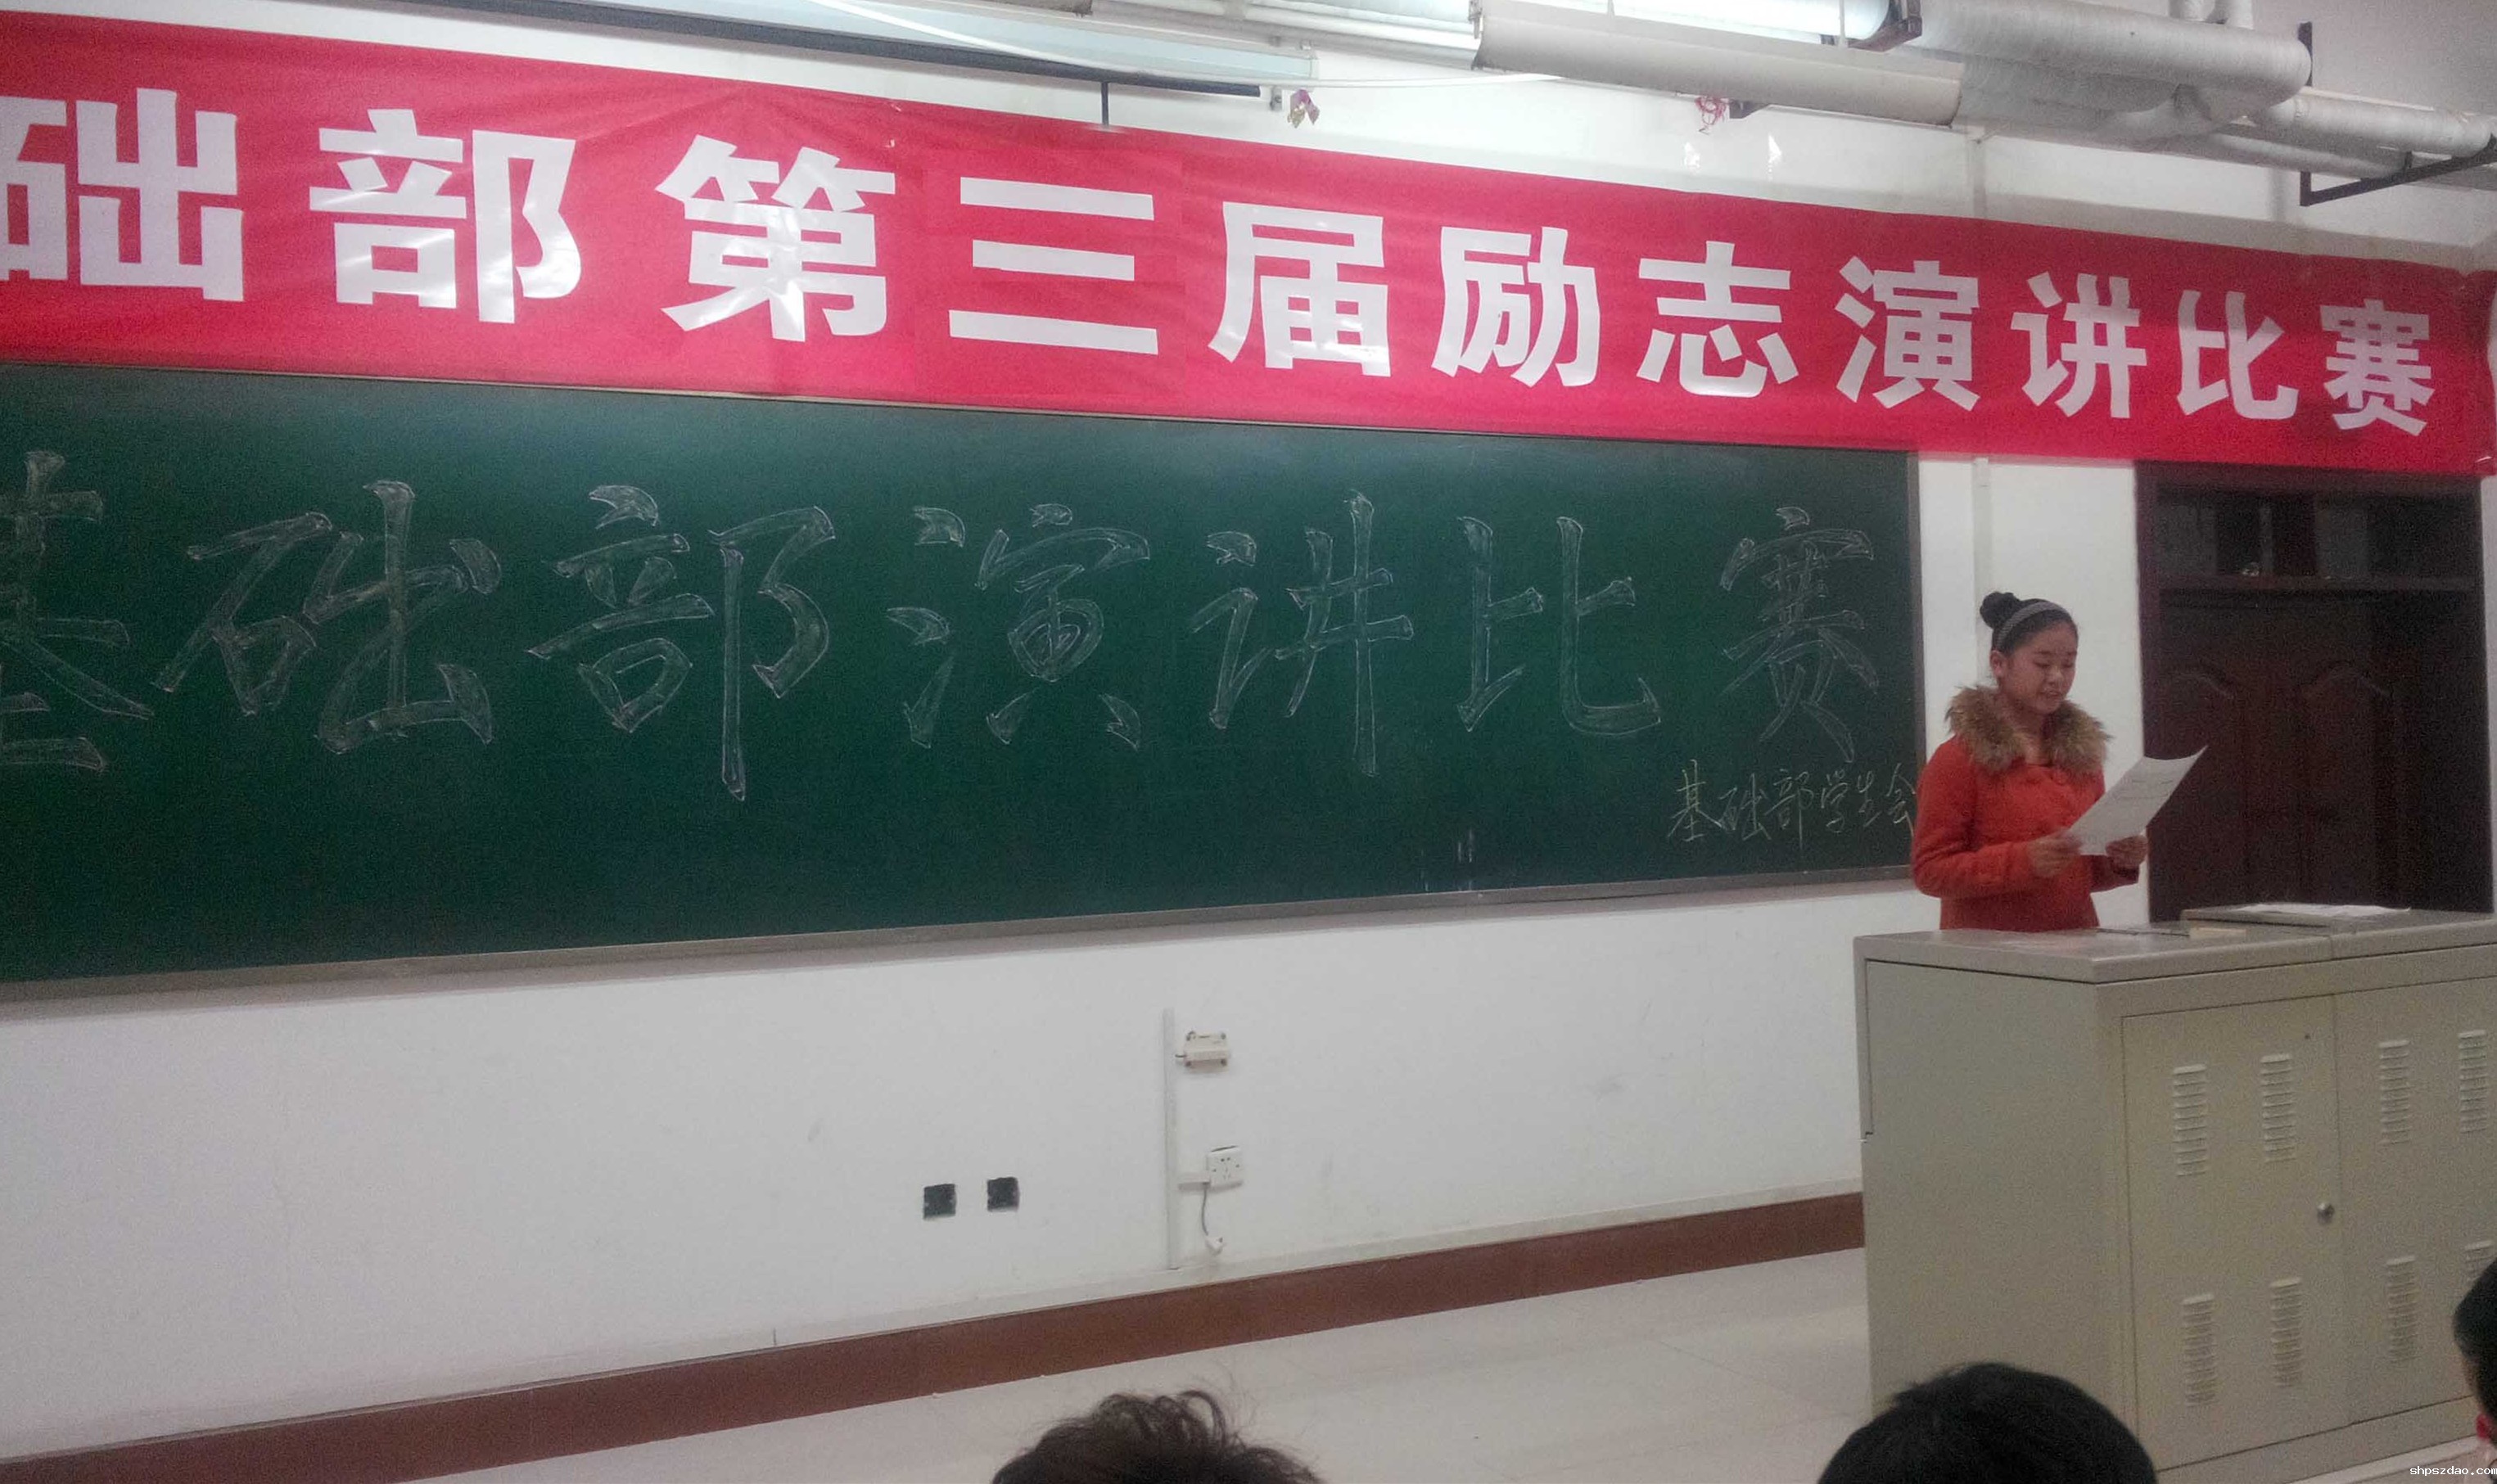 础部第三届励志演讲比赛
基础部演讲比赛
基础部学生会
shpszdao.com